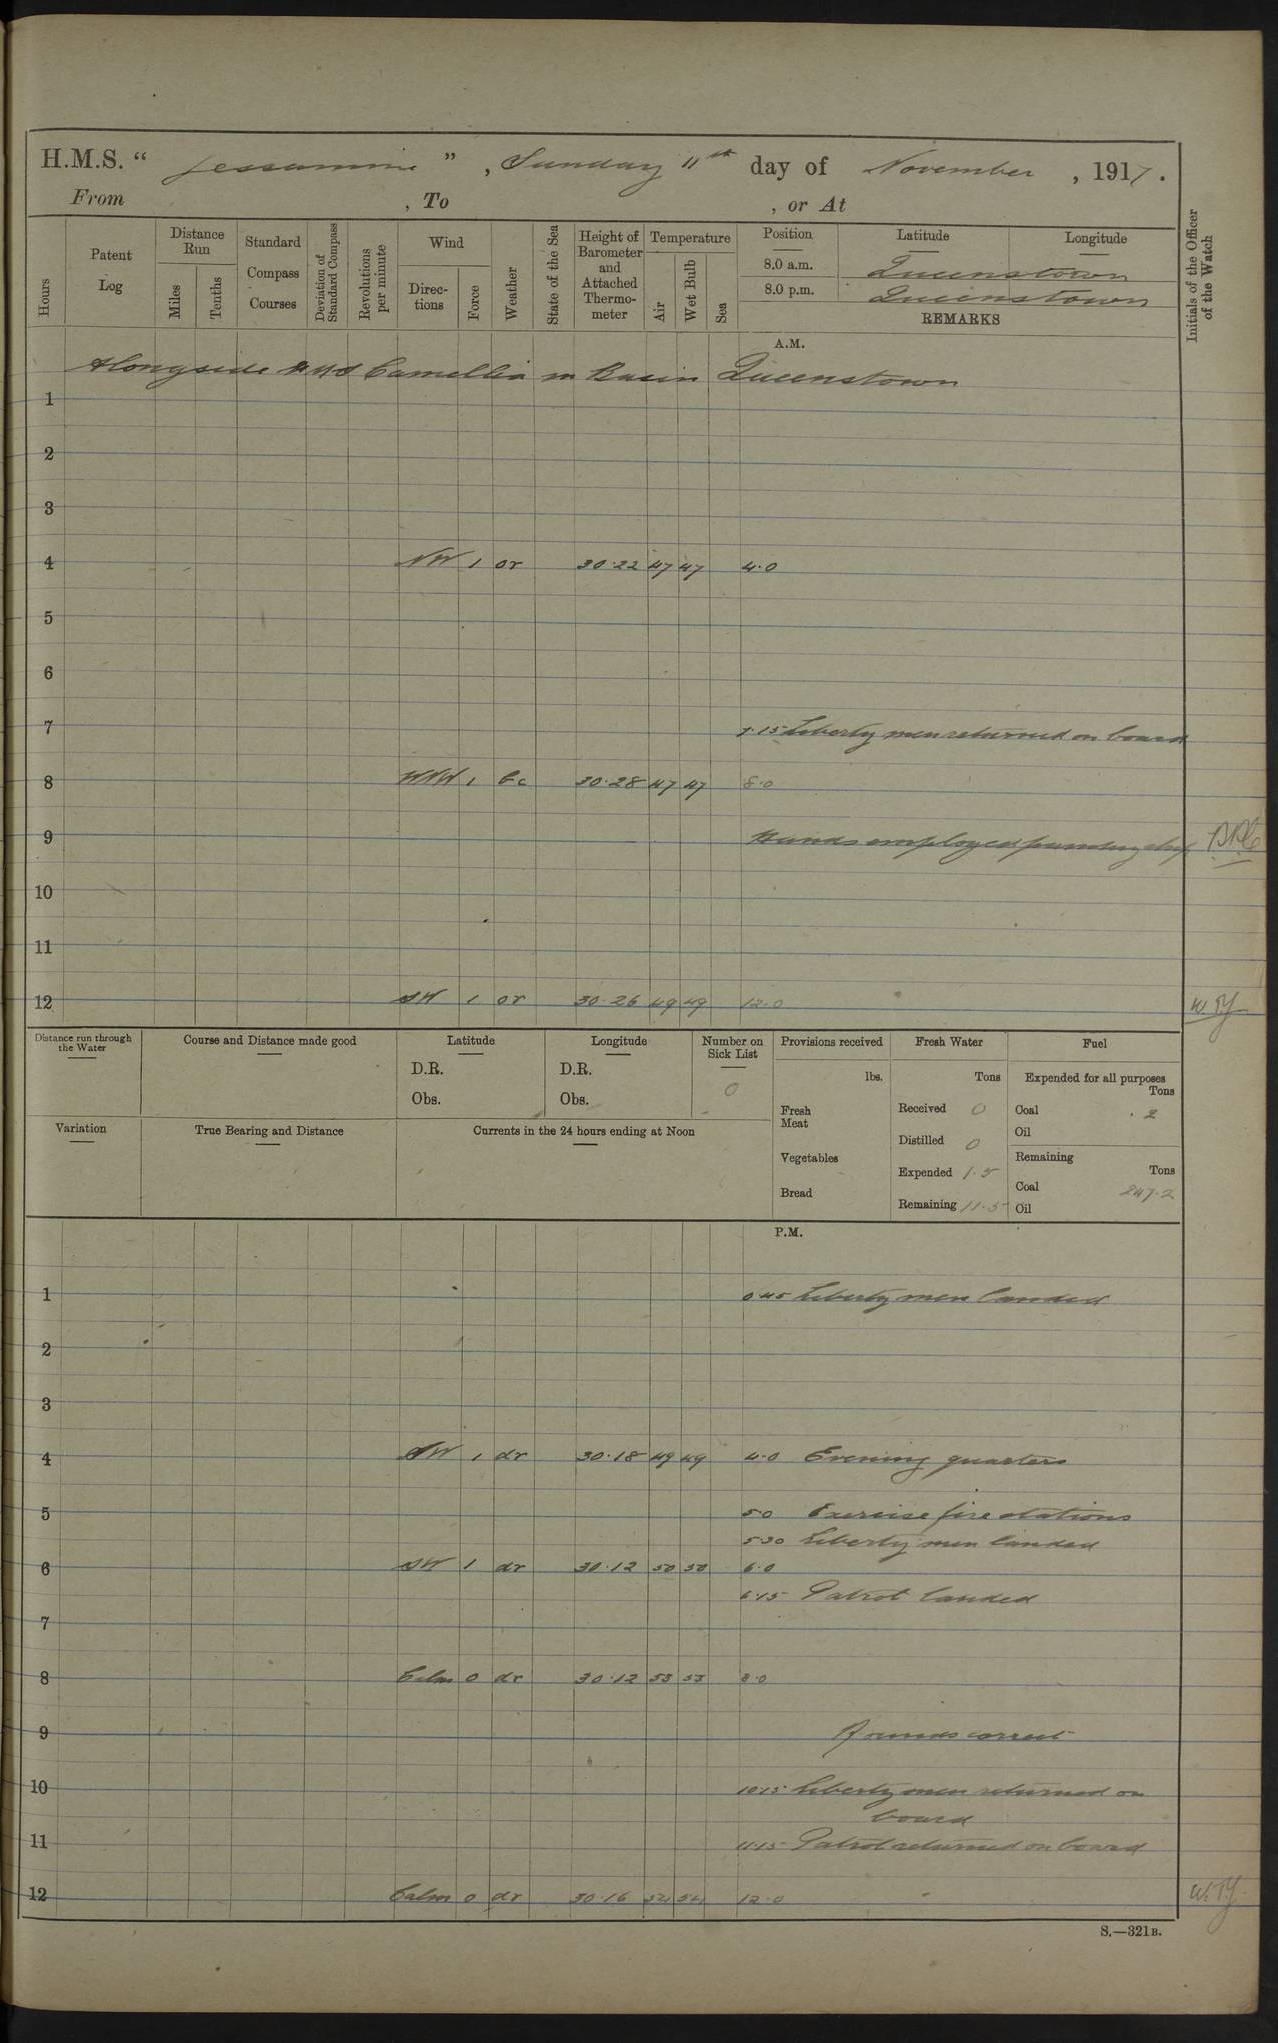 H.M.S. “ Jessamine ” , Sunday 11th day of November , 1917.
From , To , or At
Hours
Patent Log
Distance Run
Miles
Tenths
Standard Compass Courses
Deviation of Standard Compass
Revolutions per minute
Wind
Directions
Force
Weather
State of the Sea
Height of Barometer and Attached Thermometer
Temperature
Air
Wet Bulb
Sea
Position
8.0 a.m.
8.0 p.m.
Latitude
Longitude
Queenstown
Queenstown
REMARKS
Initials of the Officer of the Watch
A.M.
Alongside HMS Camellia in Basin Queenstown
1
2
3
4 NW 1 or 30.22 47 47 4.0
5
6
7
7.15 Liberty men returned on board
8 WNW 1 bc 30.28 47 47 8.0
9
Hands employed
10
11
12 SW 1 or 30.26 49 49 12.0 W.T.Y
Distance run through the Water
Course and Distance made good
Latitude
D.R.
Obs.
Longitude
D.R.
Obs.
Number on Sick List
0
Provisions received
lbs.
Fresh Meat
Vegetables
Bread
Fresh Water
Tons
Received 0
Distilled 0
Expended 1.5
Remaining 11.5
Fuel
Expended for all purposes
Tons
Coal .2
Oil
Remaining
Tons
Coal 247.2
Oil
Variation
True Bearing and Distance
Currents in the 24 hours ending at Noon
P.M.
1 0.45 Liberty men landed
2
3
4 SW 1 dr 30.18 49 49 4.0 Evening quarters
5 5.0 Exercise fire stations
5.30 Liberty men landed
6 SW 1 dr 30.12 50 50 6.0
6.15 Patrol landed
7
8 Calm 0 dr 30.12 53 53 8.0
9 Rounds correct
10 10.15 Liberty men returned on
board
11 11.15 Patrol returned on board
12 Calm 0 dr 30.16 54 54 12.0 W.T.Y
S.—321B.